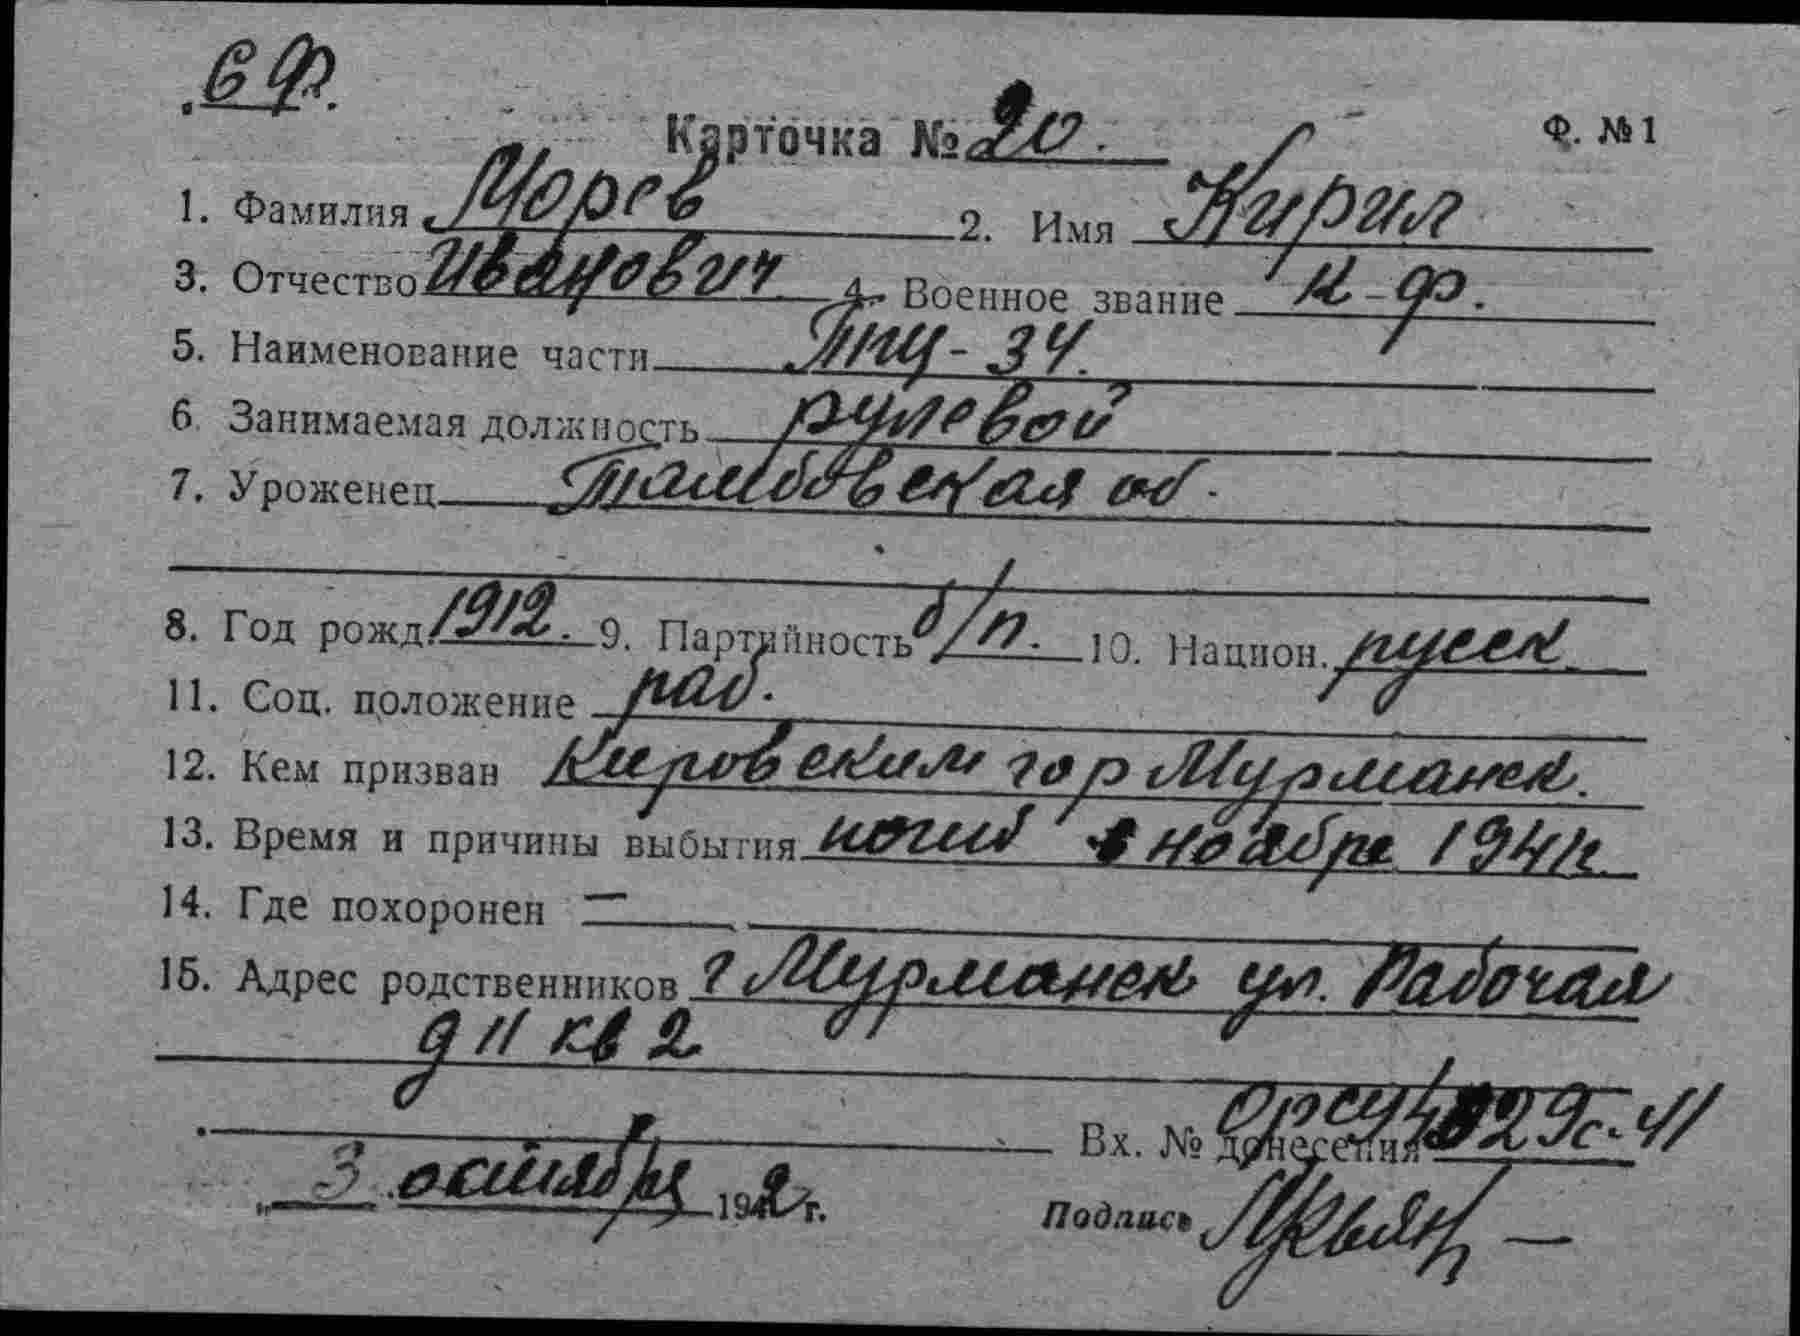 СФ.
Карточка № 20. Ф. № 1
1. Фамилия Морев 2. Имя Кирил
3. Отчество Иванович 4. Военное звание к-ф.
5. Наименование части Тщ-34.
6. Занимаемая должность рулевой
7. Уроженец Тамбовская об.
8. Год рожд. 1912. 9. Партийность б/п. 10. Национ. русск
11. Соц. положение раб.
12. Кем призван Кировским гор Мурманск.
13. Время и причины выбытия погиб в ноябре 1941г.
14. Где похоронен —
15. Адрес родственников г Мурманск ул. Рабочая
д 11 кв 2
Вх. № донесения 029с-41
„3 октября 1942 г. Подпись